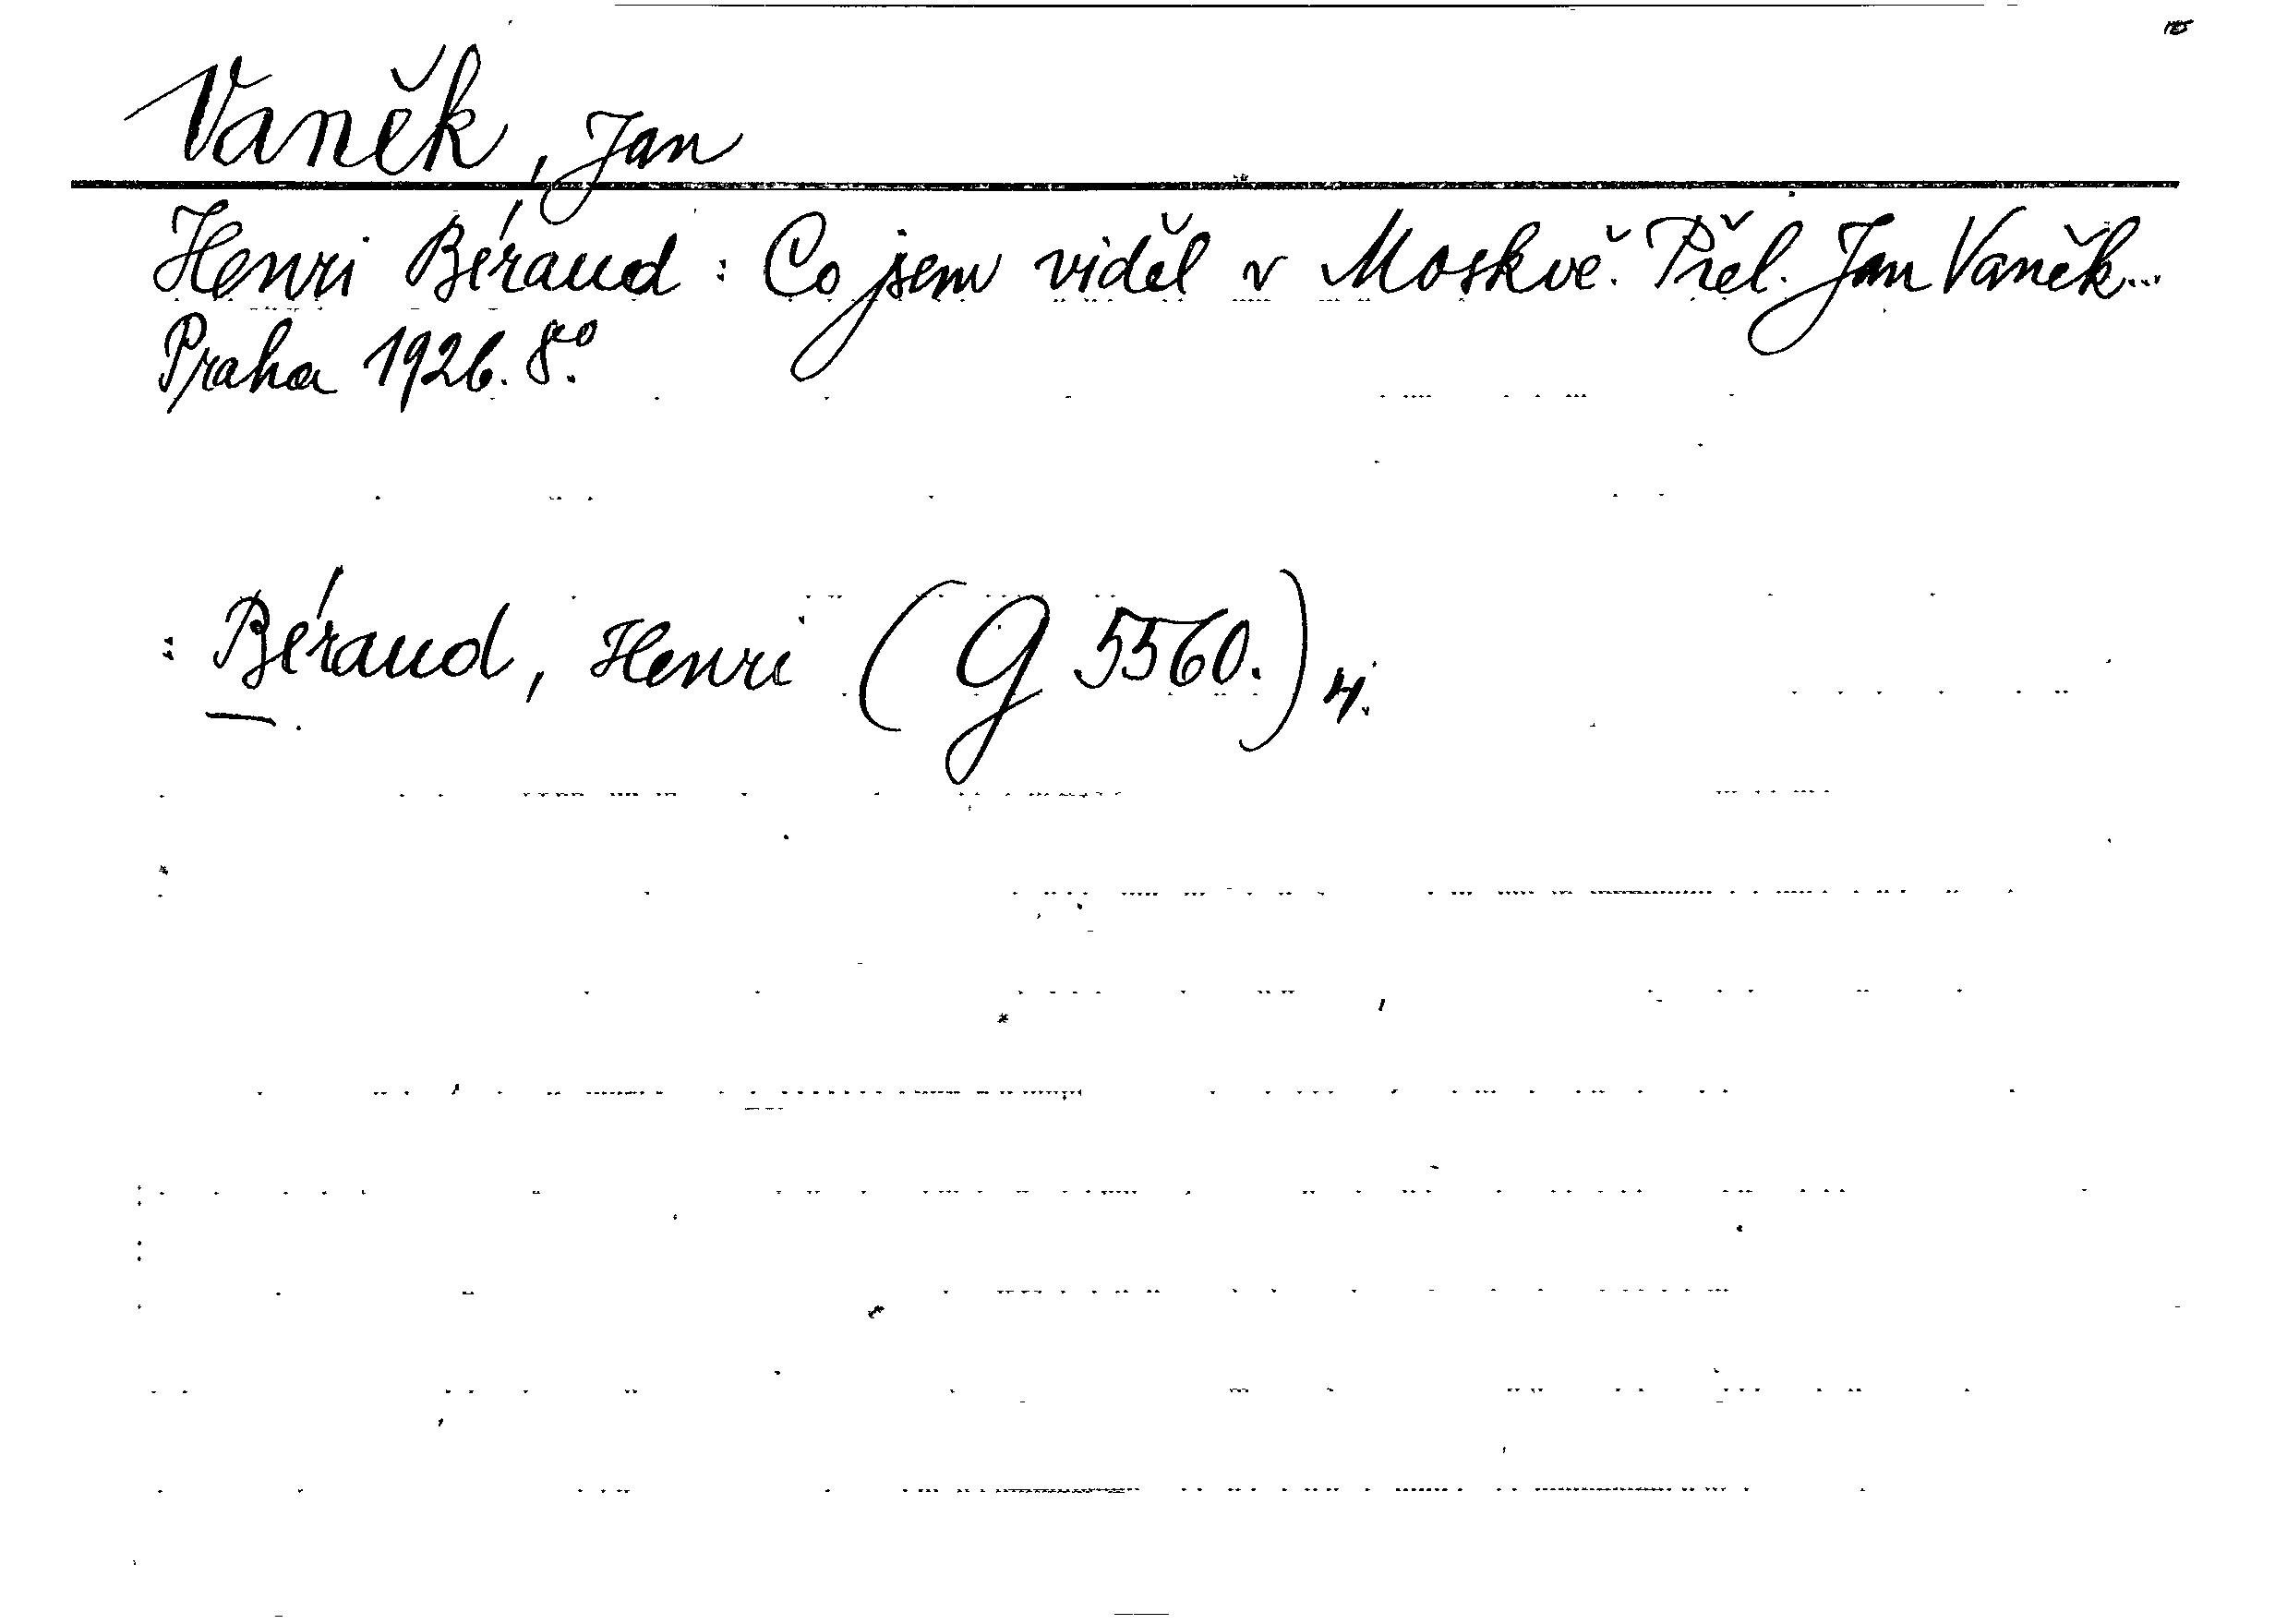 Vaněk, Jan
Henri Béraud: Co jsem viděl v Moskvě. Přel. Jan Vaněk...
Praha 1926. 8°.
: Béraud, Henri (G 5560.)